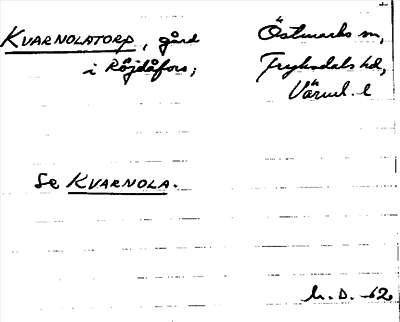 KVARNOLATORP, gård Östmarks sn,
i Röjdåfors; Fryksdals hd,
Värml. l
Se KVARNOLA.
h. D. -62